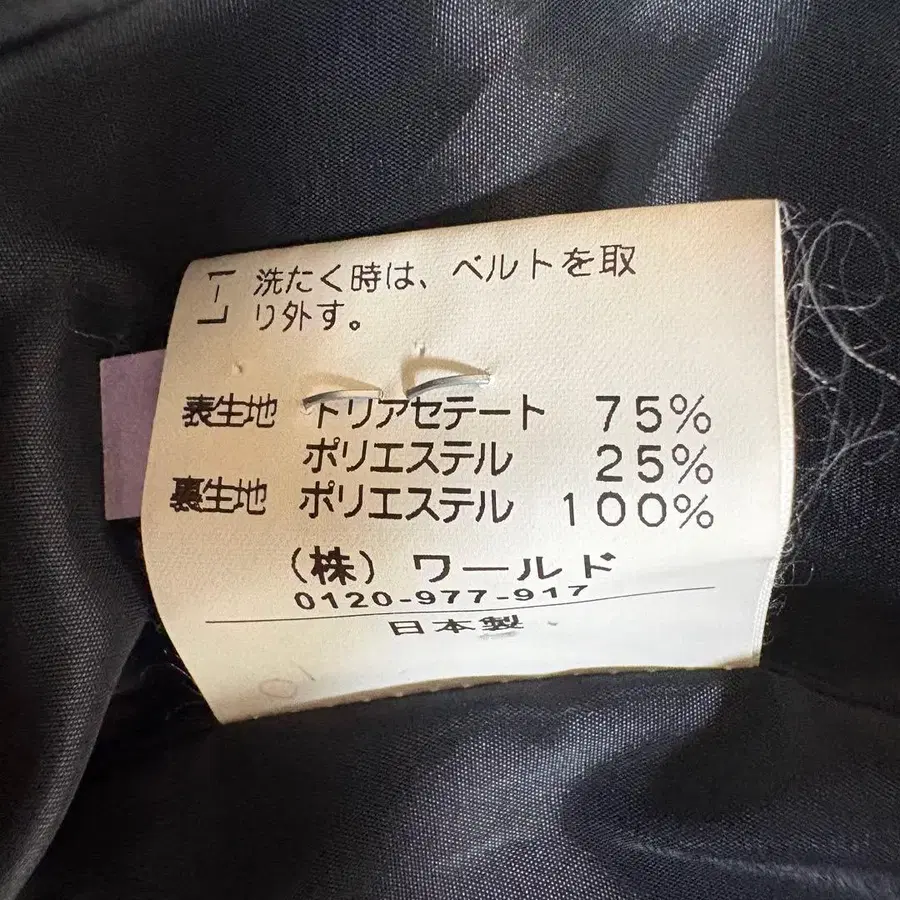 L-1
洗たく時は、ベルトを取
り外す。
表生地 トリアセテート 75%
ポリエステル 25%
裏生地 ポリエステル 100%
(株) ワールド
0120-977-917
日本製